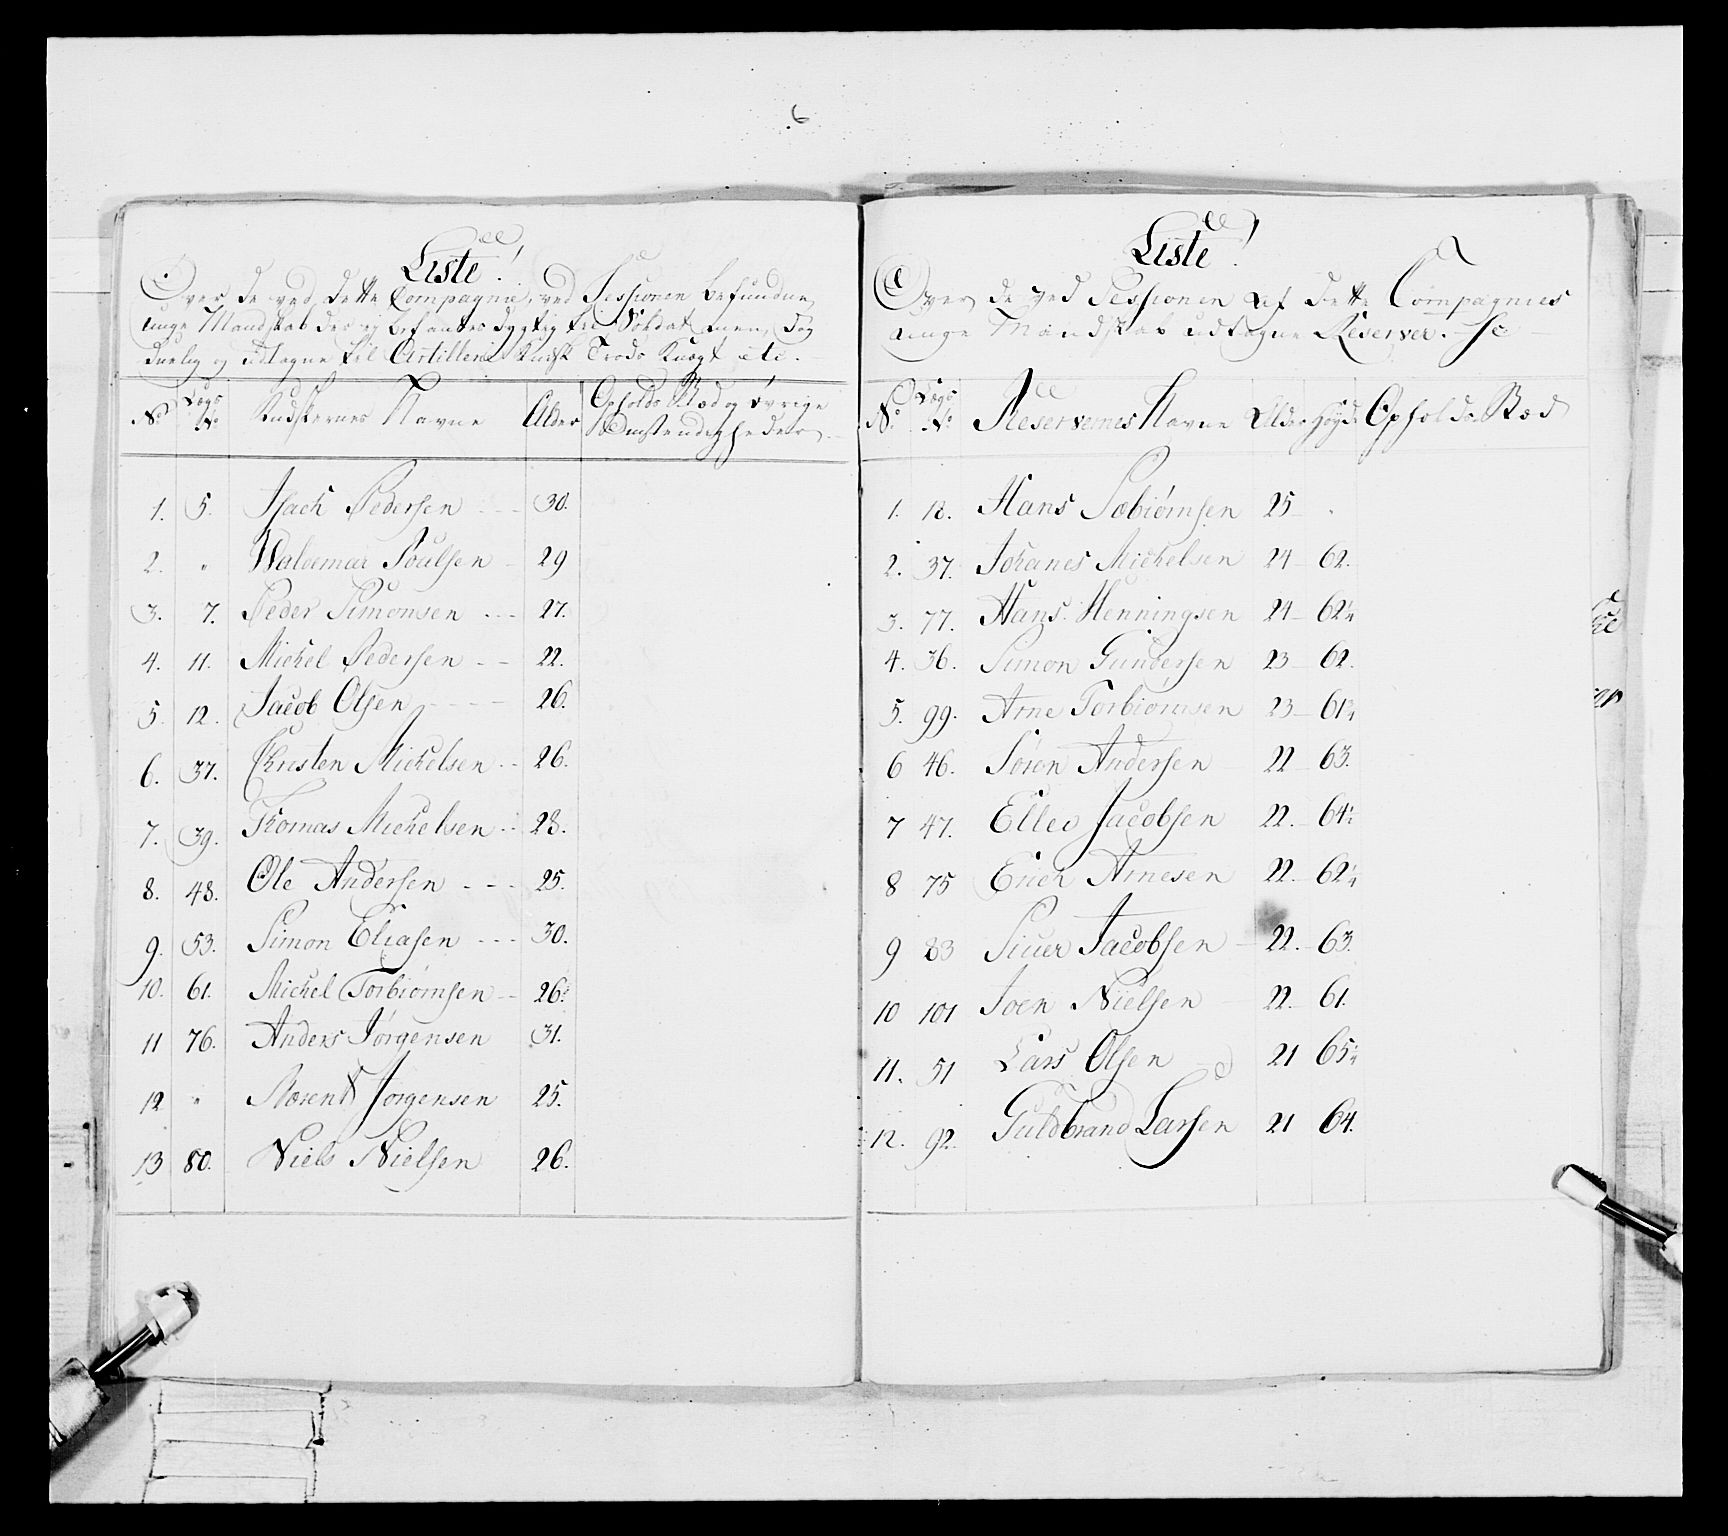 6
Liste!
Over de ved dette Compagnie, ved Sessionen befundne
unge Mandskab der ej befantes dygtig til Soldat men, dog
duelig og udtagne til Artillerie Kudsk Trods Knegt etc.
No Lægs No Kudskernes Navne Alder Opholds Stæd og øvrige Omstendigheder
1. 5. Isach Pedersen 30.
2. " Waldemar Poulsen 29
3. 7. Peder Simonsen 27.
4. 11. Michel Pedersen 22.
5. 12. Jacob Olsen 26.
6. 37. Christen Michelsen 26.
7. 39. Thomas Michelsen 28.
8. 48. Ole Andersen 25.
9. 53. Simon Eliasen 30.
10. 61. Michel Torbiørnsen 26.
11 76. Anders Jørgensen 31.
12 " Jorgensen 25.
13 80. Niels Nielsen 26.
Liste!
Over de ved Sessionen af dette Compagnies
unge Mandskab udtagne Reserver.
No. Lægs No Reservernes Navne Alder Høyde Opholds Stæd
1. 12. Hans Sæbiørnsen 25
2. 37. Johanes Michelsen 24 62.
3. 77. Hans Henningsen 24 62 1/4
4. 36. Simon Gundersen 23 62.
5. 99. Arne Torbiørnsen 23 61 3/4
6 46. Søren Andersen 22 63.
7 47. Ellev Jacobsen 22. 64 1/2
8 75 Erich Arnesen 22 62 1/4
9 83 Siuer Jacobsen 22. 63.
10 101 Joen Nielsen 22. 61.
11. 51 Lars Olsen 21 65 1/4
12. 92. Guldbrand Larsen 21 64.